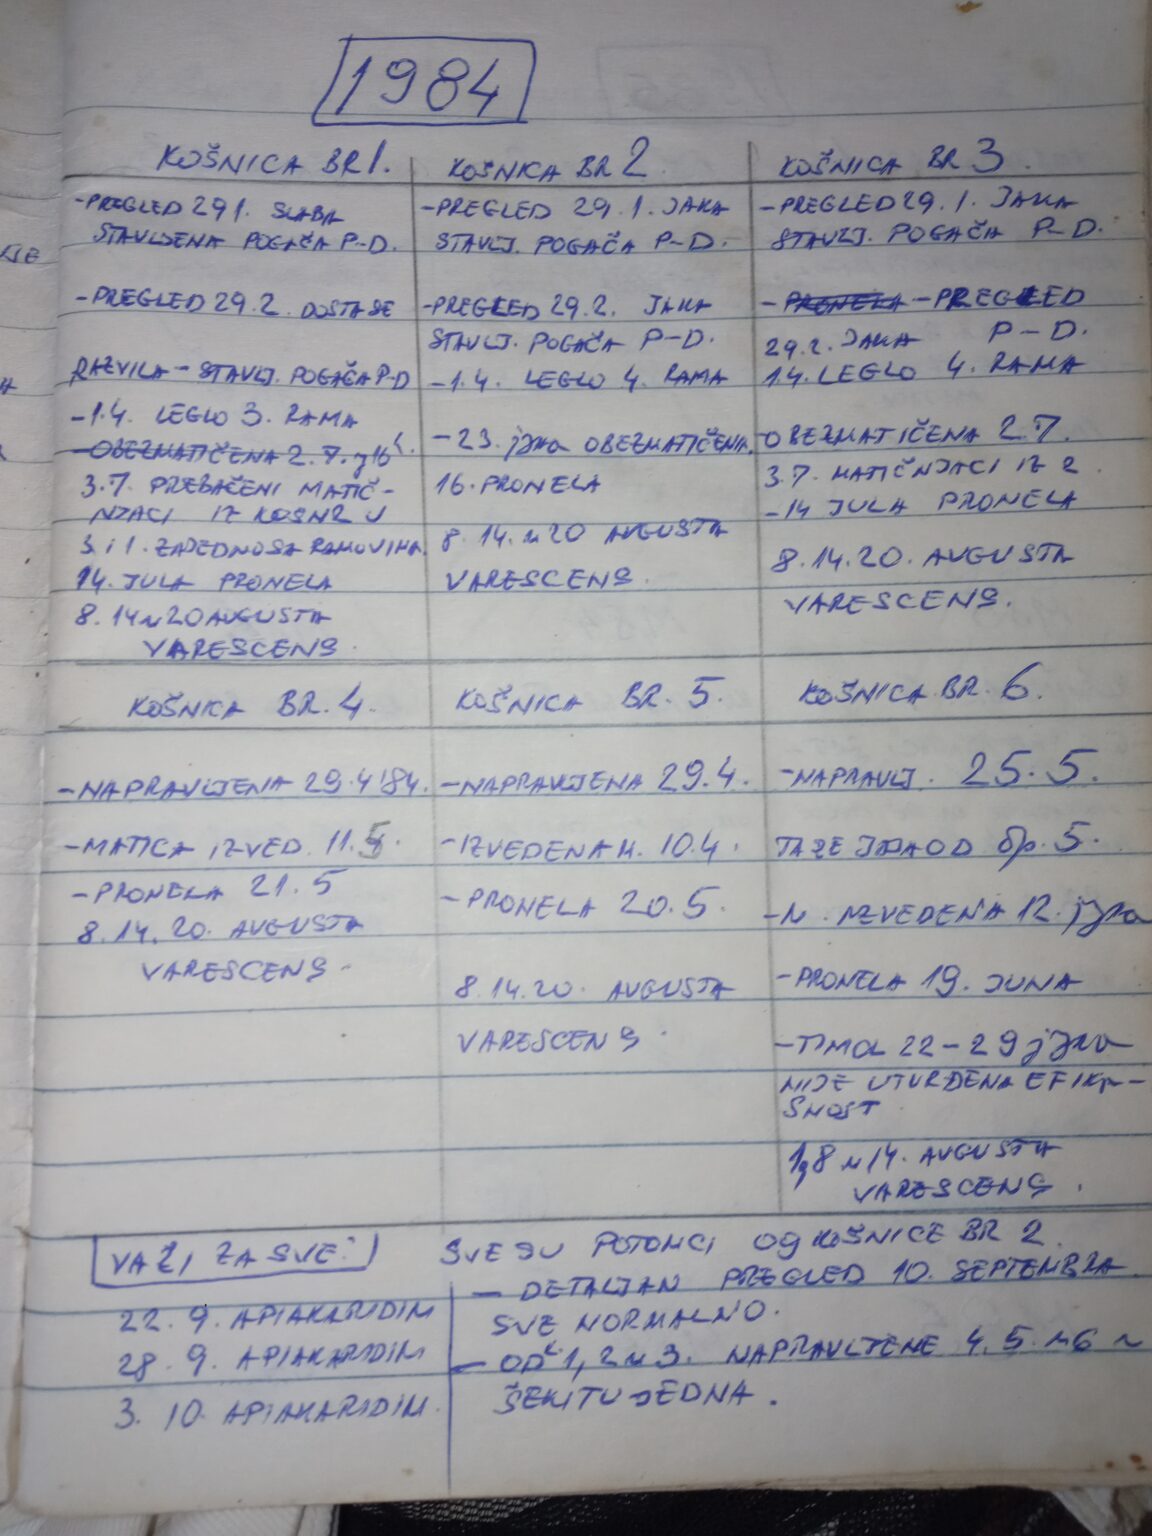 1984
KOŠNICA BR 1.
-PREGLED 29 1. SLABA
STAVLJENA POGAČA P-D.
-PREGLED 29.2. DOSTA SE
RAZVILA - STAVLJ. POGAČA P-D
-1.4. LEGLO 3. RAMA
-OBEZMATIČENA 2.7.
3.7. PREBAČENI MATIČ-
NJACI IZ KOŠN 2 U
3 i 1. ZAJEDNO SA RAMOVIMA.
14. JULA PRONELA
8. 14 и 20 AVGUSTA
VARESCENS.
KOŠNICA BR 2
-PREGLED 29.1. JAKA
STAVLJ. POGAČA P-D.
-PREGLED 29.2. JAKA
STAVLJ. POGAČA P-D.
-1.4. LEGLO 4. RAMA
-23. јуна OBEZMATIČENA.
16. PRONELA
8. 14. и 20 AVGUSTA
VARESCENS.
KOŠNICA BR 3.
-PREGLED 29. 1. JAKA
STAVLJ. POGAČA P-D.
-PRONELA -PREGLED
29.2. JAKA P-D.
1.4. LEGLO 4. RAMA
OBEZMATIČENA 2.7.
3.7. MATIČNJACI IZ 2.
-14 JULA PRONELA
8.14.20. AVGUSTA
VARESCENS.
KOŠNICA BR. 4.
-NAPRAVLJENA 29.4'84.
-MATICA IZVED. 11.5.
-PRONELA 21.5
8.14.20. AVGUSTA
VARESCENS.
KOŠNICA BR. 5.
-NAPRAVLJENA 29.4.
-IZVEDENA M. 10.4.
-PRONELA 20.5.
8.14.20. AVGUSTA
VARESCENS.
KOŠNICA BR. 6.
-NAPRAVLJ. 25.5.
OD бр. 5.
-M. IZVEDENA 12. јуна
-PRONELA 19. JUNA
22-29 јуна
NIJE UTVRĐENA EFIKA-
SNOST
1,8 и 14. AVGUSTA
VARESCENS.
VAŽI ZA SVE:
22. 9. APIAKARIDIM
28. 9. APIAKARIDIM
3. 10. APIAKARIDIM.
SVE SU POTOMCI OD KOŠNICE BR 2.
- DETALJAN PREGLED 10. SEPTEMBRA.
SVE NORMALNO.
- OD 1, 2 и 3. NAPRAVLJENE 4. 5. и 6 и
JEDNA.